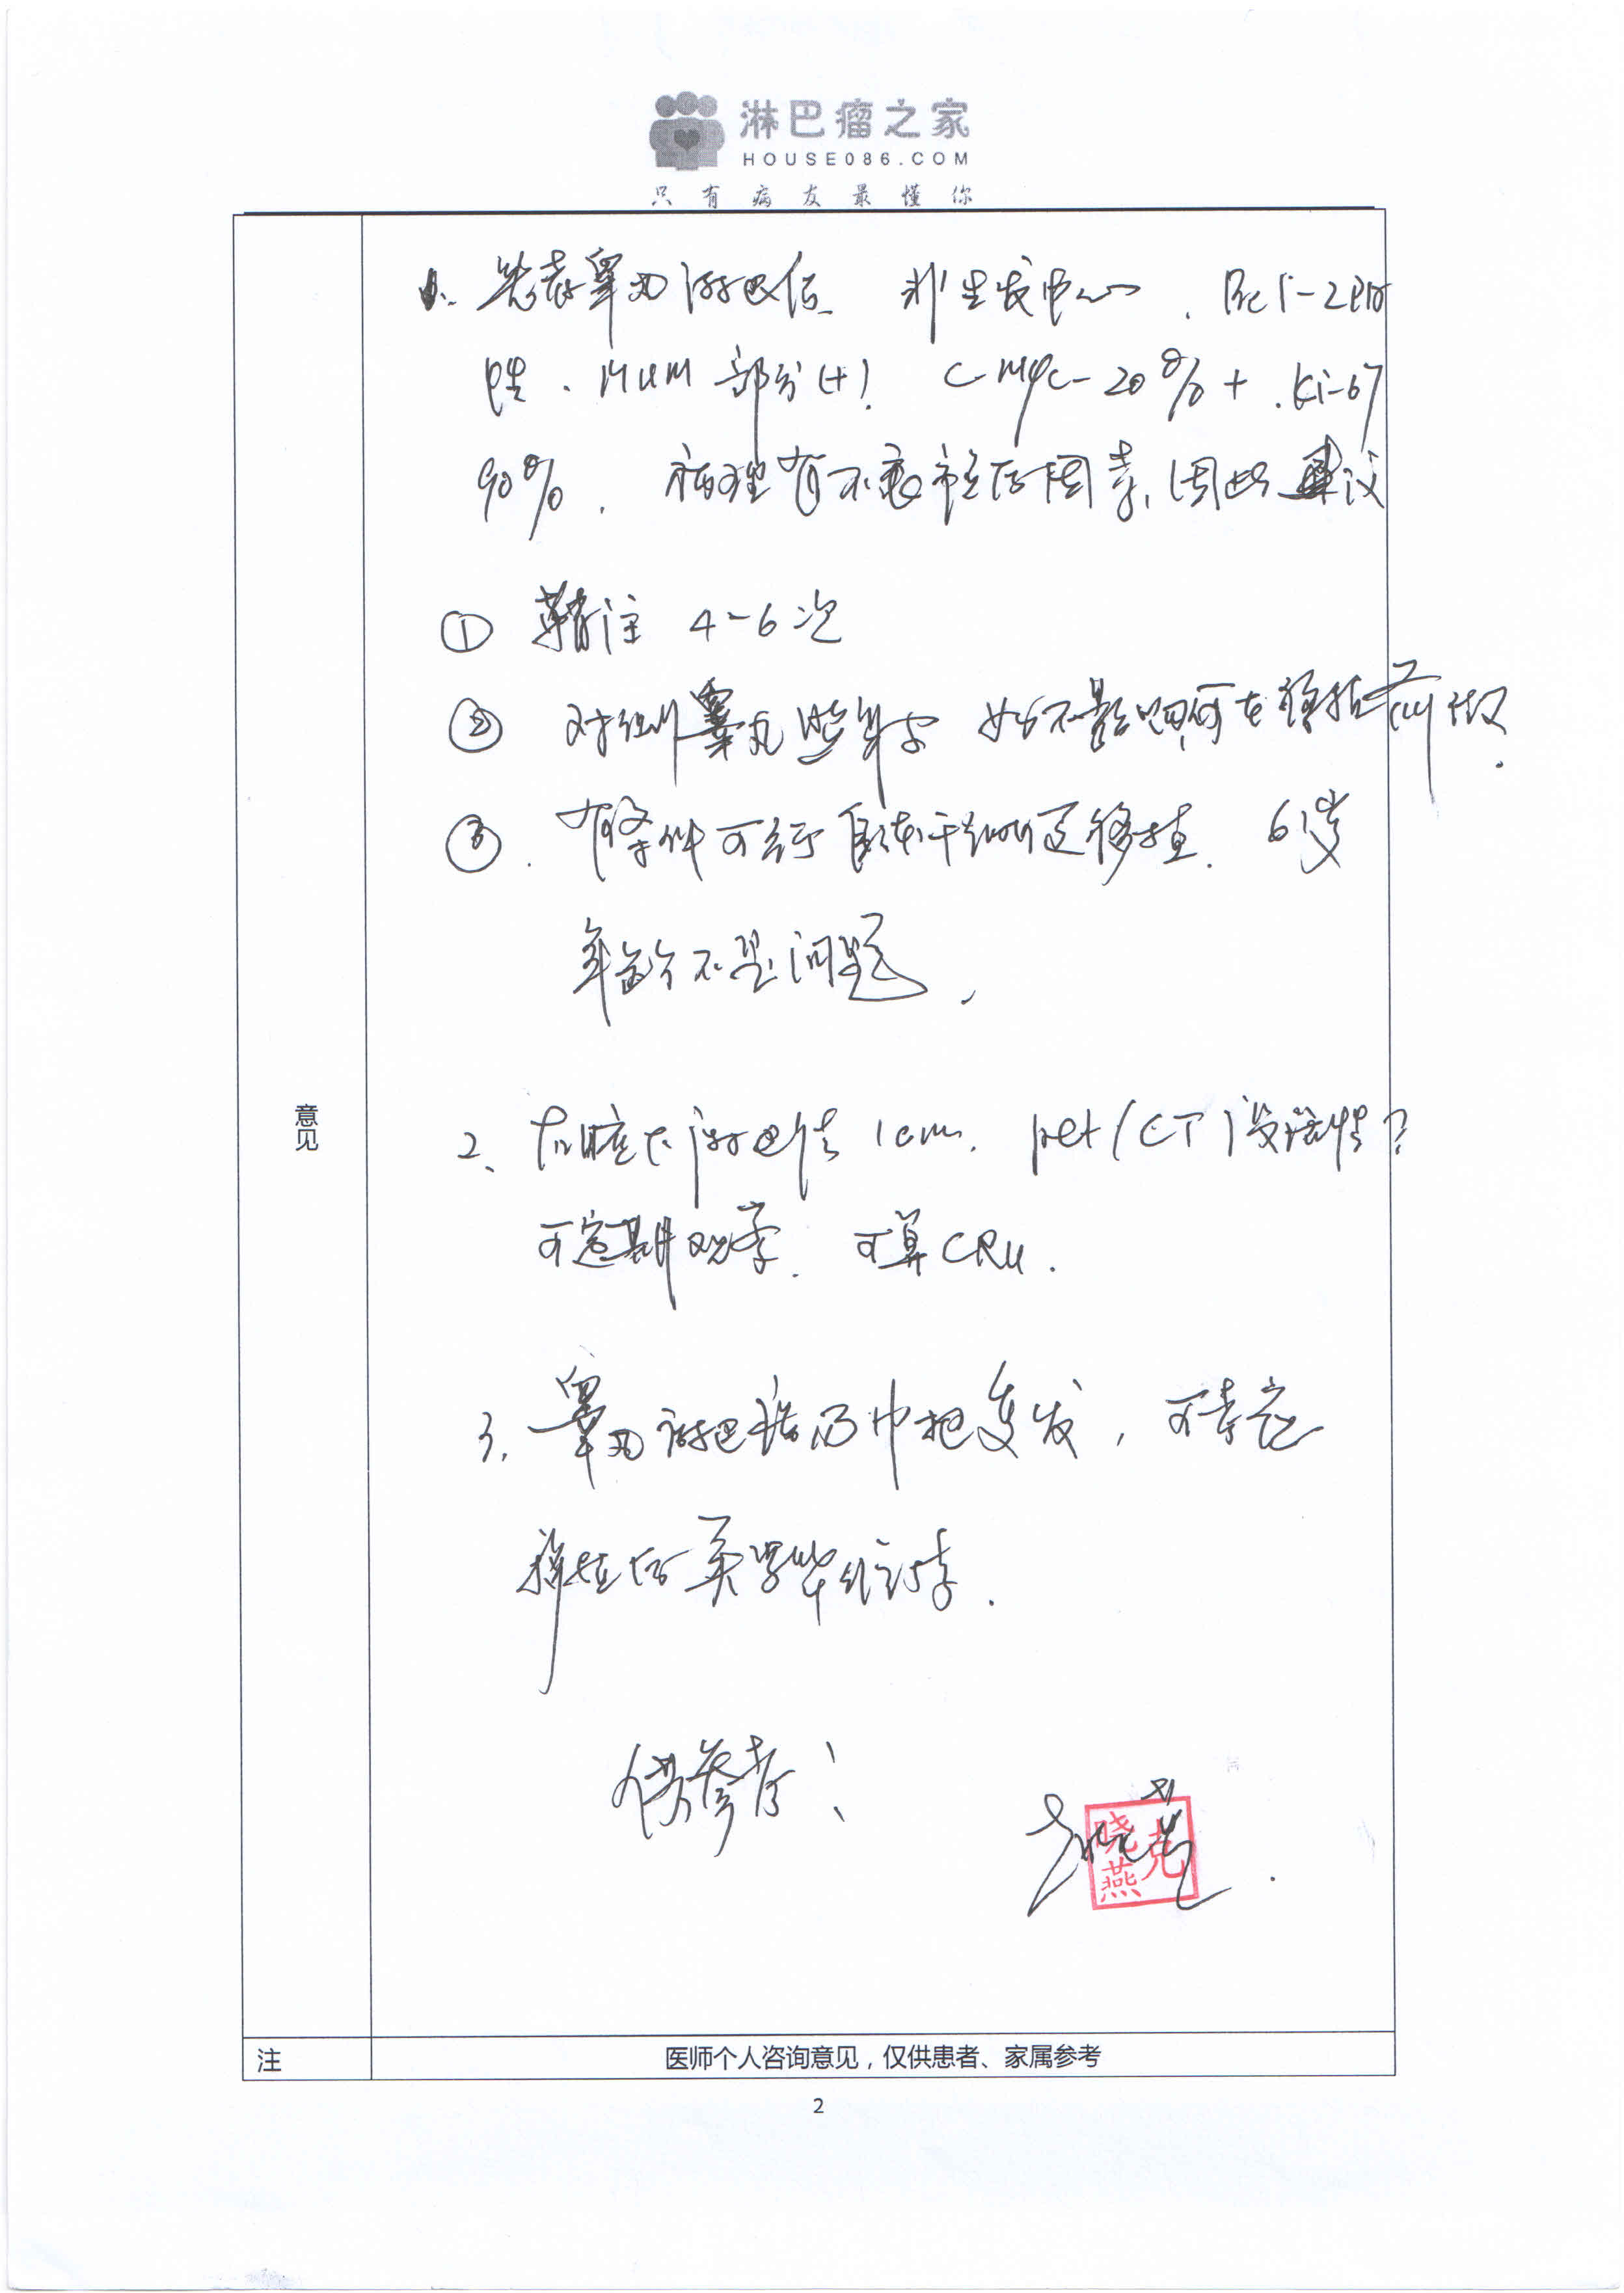 淋巴瘤之家
HOUSE086.COM
只有病友最懂你
意见
1. 患者睾丸淋巴瘤 非生发中心 . Bcl-2阳
性 . MUM 部分(+) . C-MYC-20%+ . Ki-67
90% . 病理有不良预后因素, 因此建议
① 鞘注 4-6次
② 对侧睾丸照射 如不影响可在移植前做.
③. 有条件可行自体干细胞移植. 61岁
年龄不是问题.
2、右腋下淋巴结1cm. pet/CT 没活性?
可定期观察. 可算CRu.
3. 睾丸淋巴瘤易中枢复发, 可考虑
移植后 维持.
供参考!
克晓燕
注
医师个人咨询意见，仅供患者、家属参考
2